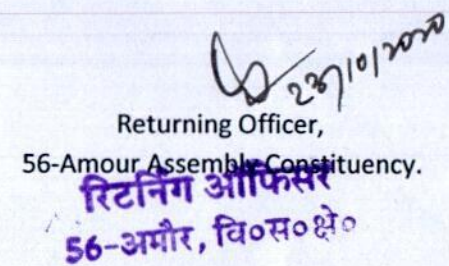 23/10/2020
Returning Officer,
56-Amour Assembly Constituency.
रिटर्निंग ऑफिसर
56-अमौर, वि०स०क्षे०